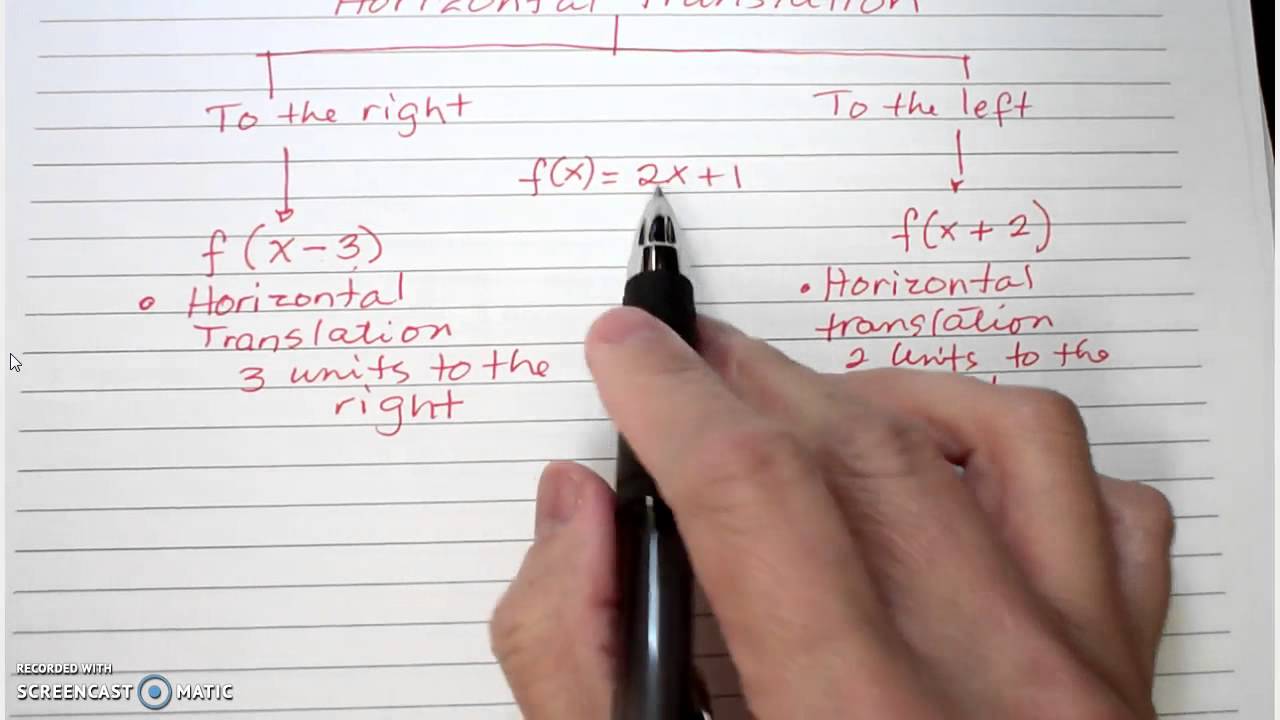 Horizontal Translation
To the right
To the left
f(x) = 2x + 1
f(x - 3)
f(x + 2)
• Horizontal
Translation
3 units to the
right
• Horizontal
translation
2 units to the
RECORDED WITH
SCREENCAST MATIC